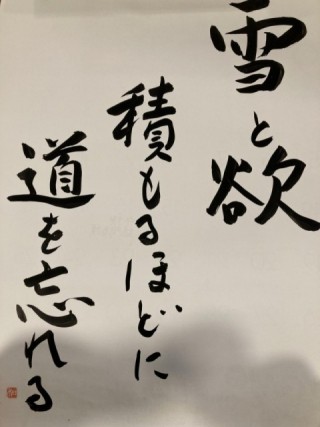 雪と欲
積もるほどに
道を忘れる